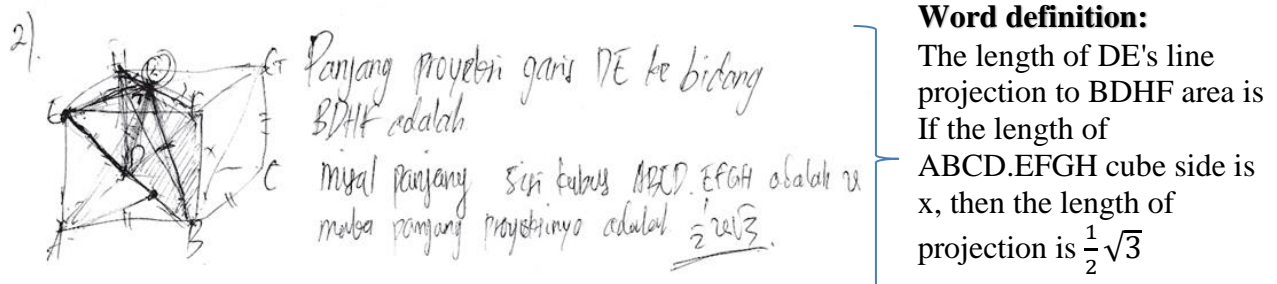 2).
H
G
E
F
D
C
A
B
Panjang proyeksi garis DE ke bidang
BDHF adalah
misal panjang sisi kubus ABCD.EFGH adalah x
maka panjang proyeksinya adalah 1/2 x√3
Word definition:
The length of DE's line
projection to BDHF area is
If the length of
ABCD.EFGH cube side is
x, then the length of
projection is 1/2 √3